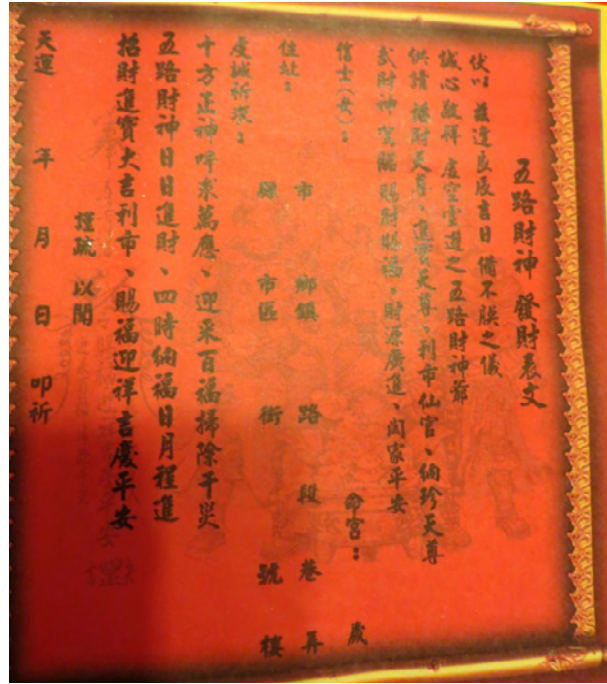 五路財神 發財表文
伏以 茲逢良辰吉日 備不腆之儀
誠心敬拜 虛空雲遊之五路財神爺
供請 招財天尊、進寶天尊、利市仙官、納珍天尊
武財神 賀臨 賜財賜福，財源廣進、闔家平安
信士(女)： 命宮： 歲
住址： 市 鄉鎮 路 段 巷 弄
縣 市區 街 號 樓
虔誠祈求：
十方正神呼求萬應、迎來百福掃除千災
五路財神日日進財、四時納福日月程進
招財進寶大吉利市、賜福迎祥吉慶平安
謹疏 以聞
天運 年 月 日 叩祈